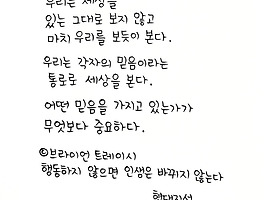 우리는 세상을
있는 그대로 보지 않고
마치 우리를 보듯이 본다.
우리는 각자의 믿음이라는
통로로 세상을 본다.
어떤 믿음을 가지고 있는가가
무엇보다 중요하다.
©브라이언 트레이시
행동하지 않으면 인생은 바뀌지 않는다
현대지성